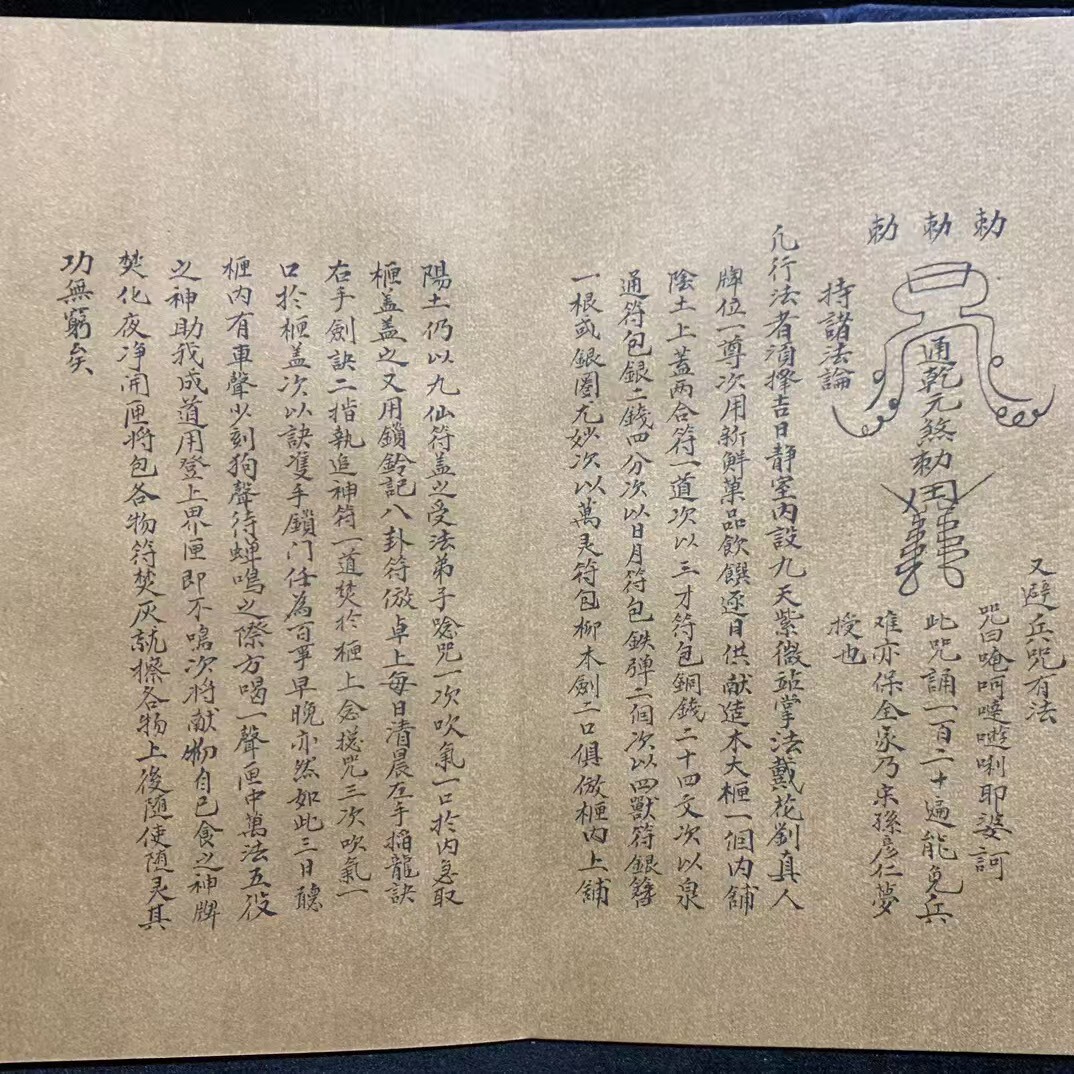 又避兵咒有法
咒曰唵呵㗳𠽾唎耶婆訶
此咒誦一百二十遍能免兵
难亦保全家乃宋孫彦仁夢
授也
勅勅勅
通乾元煞勅
持諸法論
凡行法者須擇吉日静室内設九天紫微站掌法戴花劉真人
牌位一尊次用新鮮菓品飲饌逐日供献造木大榧一個内舖
陰土上蓋两合符一道次以三才符包銅錢二十四文次以泉
通符包銀二錢四分次以日月符包鉄弹二個次以四獸符銀簪
一根或銀圈尤妙次以萬灵符包柳木劍二口俱倣榧内上舖
陽土仍以九仙符蓋之受法弟子唸咒一次吹氣一口於内急取
榧盖盖之又用鎖鈴記八卦符倣卓上每日清晨左手搯龍訣
右手劍訣二指執追神符一道焚於榧上念揔咒三次吹氣一
口於榧盖次以訣隻手鎖门任為百事早晚亦然如此三日聽
榧内有車聲少刻狗聲待蝉鳴之際方喝一聲匣中萬法五役
之神助我成道用登上界匣即不鳴次将献物自己食之神牌
焚化夜净用匣将包各物符焚灰就擦各物上後随使随灵其
功無窮矣